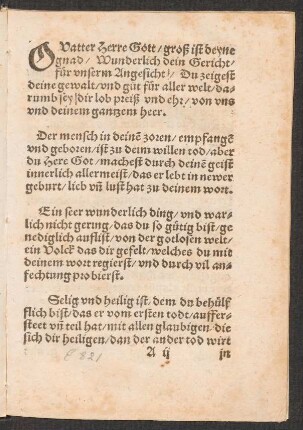 O Vatter Herre Gott/ groß ist deyne
gnad/ Wunderlich dein Gericht/
für vnserm Angesicht/ Du zeigest
deine gewalt/ vnd güt für aller welt/ da-
rumb sey dir lob preiß vnd ehr/ von vns
vnd deinem gantzem heer.
Der mensch in deinē zoren/ empfangē
vnd geboren/ ist zu dem willen tod/ aber
du Herre Got/ machest durch deinē geist
innerlich allermeist/ das er lebt in newer
geburt/ lieb vñ lust hat zu deinem wort.
Ein seer wunderlich ding/ vnd war-
lich nicht gerung/ das du so gütig bist/ ge-
nediglich auflist/ von der gotlosen welt/
ein Volck das dir gefelt/ welches du mit
deinem wort regierst/ vnd durch vil an-
fechtung probierst.
Selig vnd heilig ist/ dem du behülf
flich bist/ das er vom ersten todt/ auffer-
steet vñ teil hat/ mit allen glaubigen/ die
sich dir heiligen/ dan der ander tod wirt
A ij jn